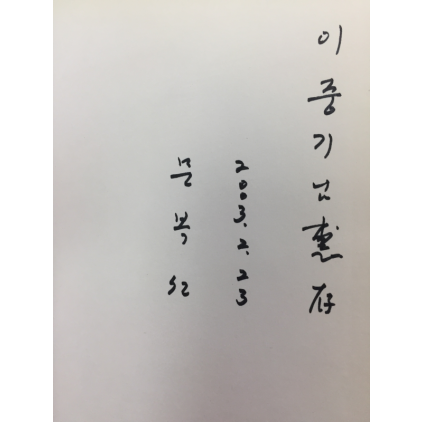 이중기님惠存
2003. 2. 23
문복선